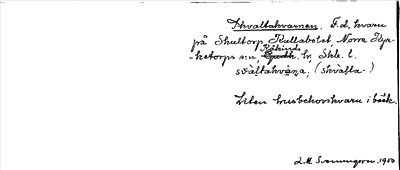 Skvaltakvarnen. F.d. kvarn
på Skultorp, Kullabolet, Norra Kyr-
-ketorps sn, Kåkinds hr, Skbr. l.
svaltakvana, (skvalta-)
Liten husbehovskvarn i bäck.
L.M. Svenungson, 1950